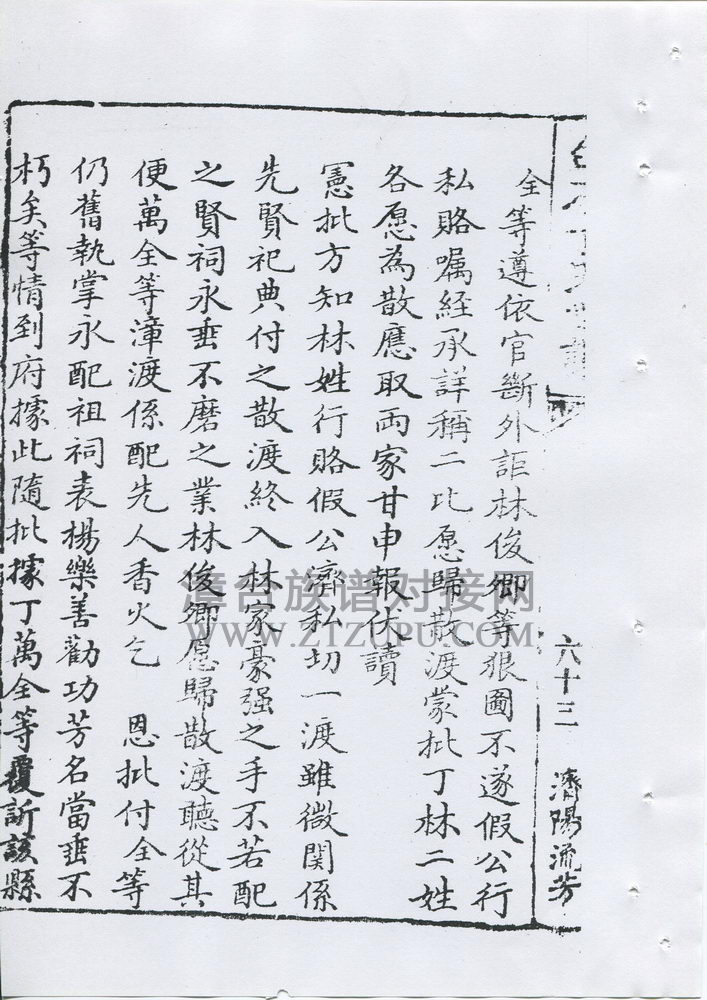 六十三
濟陽流芳
全等遵依官斷外詎林俊卿等狠圖不遂假公行
私賂嘱經承詳稱二比愿歸散渡蒙批丁林二姓
各愿為散應取両家甘申報伏讀
憲批方知林姓行賂假公濟私切一渡雖微関係
先賢祀典付之散渡終入林家豪强之手不若配
之賢祠永垂不磨之業林俊卿愿歸散渡聽從其
便萬全等漳渡係配先人香火乞　恩批付全等
仍舊執掌永配祖祠表楊樂善勸功芳名當垂不
朽矣等情到府據此隨批據丁萬全等覆訢該縣
漳台族谱对接网
WWW.ZTZUPU.COM